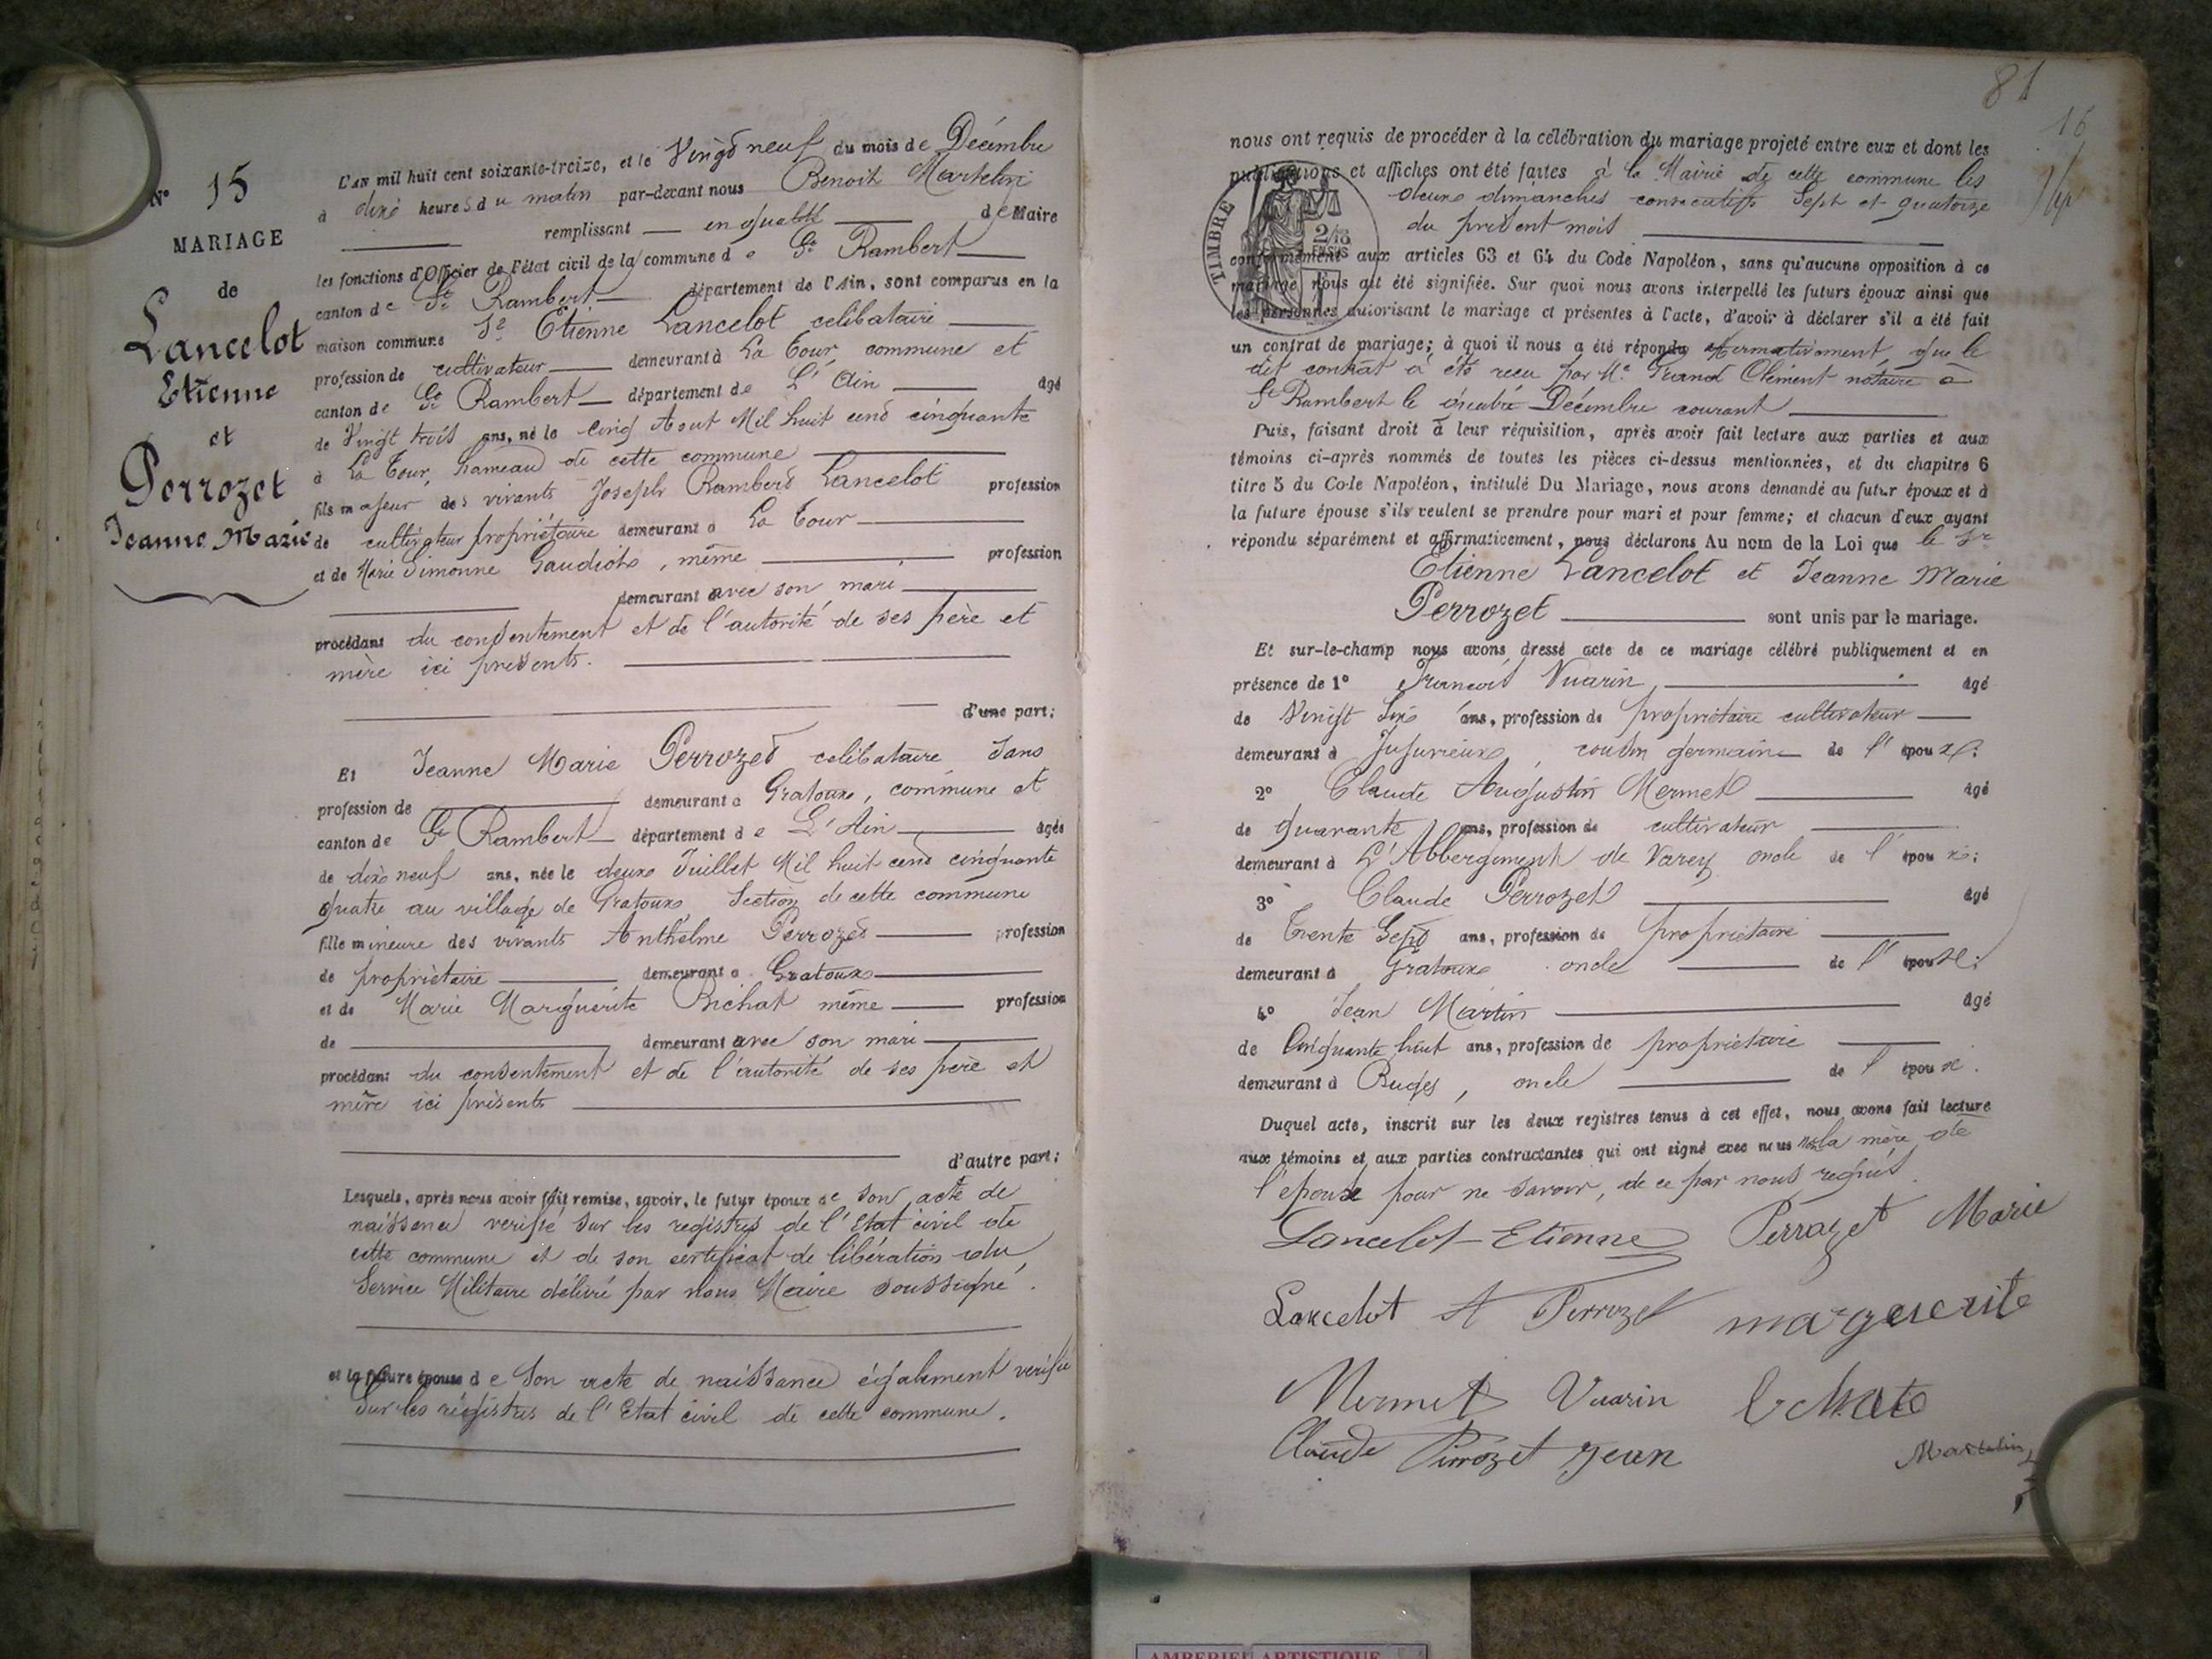 N° 15
MARIAGE
de
Lancelot
Etienne
et
Perrozet
Jeanne Marie
L'an mil huit cent soixante-treize, et le Vingt neuf du mois de Décembre
à dix heures du matin par-devant nous Benoit Martelin
remplissant en qualité de Maire
les fonctions d'Officier de l'état civil de la commune de St Rambert
canton de St Rambert département de l'Ain, sont comparus en la
maison commune Sr Etienne Lancelot celibataire
profession de cultivateur demeurant à La Tour, commune et
canton de St Rambert département de L'Ain âgé
de Vingt trois ans, né le cinq Aout Mil huit cent cinquante
à La Tour, hameau de cette commune
fils majeur des vivants Joseph Rambert Lancelot profession
de cultivateur propriétaire demeurant à La Tour
et de Marie Simonne , même profession
demeurant avec son mari
procédant du consentement et de l'autorité de ses père et
mère ici présents.
d'une part;
Et Jeanne Marie Perrozet celibataire Sans
profession de demeurant à Gratoux, commune et
canton de St Rambert département de L'Ain âgée
de dix neuf ans, née le deux Juillet Mil huit cent cinquante
quatre au village de Gratoux, Section de cette commune
fille mineure des vivants Anthelme Perrozet profession
de propriétaire demeurant à Gratoux
et de Marie Marguerite Bichat même profession
de demeurant avec son mari
procédant du consentement et de l'autorité de ses père et
mère ici présents
d'autre part;
Lesquels, après nous avoir fait remise, savoir, le futur époux de son acte de
naissance verifié sur les registres de l'Etat civil de
cette commune et de son certificat de libération du
Service Militaire délivré par Nous Maire soussigné.
et la future épouse de Son acte de naissance également verifié
Sur les registres de l'Etat civil de cette commune.
81
16
nous ont requis de procéder à la célébration du mariage projeté entre eux et dont les
publications et affiches ont été faites à la Mairie de cette commune les
deux dimanches consecutifs Sept et quatorze
du présent mois
TIMBRE
conformément aux articles 63 et 64 du Code Napoléon, sans qu'aucune opposition à ce
mariage nous ait été signifiée. Sur quoi nous avons interpellé les futurs époux ainsi que
les personnes autorisant le mariage et présentes à l'acte, d'avoir à déclarer s'il a été fait
un contrat de mariage; à quoi il nous a été répondu affirmativement, que le
dit contrat a été reçu par Me Grand Clément notaire à
St Rambert le Décembre courant
Puis, faisant droit à leur réquisition, après avoir fait lecture aux parties et aux
témoins ci-après nommés de toutes les pièces ci-dessus mentionnées, et du chapitre 6
titre 5 du Code Napoléon, intitulé Du Mariage, nous avons demandé au futur époux et à
la future épouse s'ils veulent se prendre pour mari et pour femme; et chacun d'eux ayant
répondu séparément et affirmativement, nous déclarons Au nom de la Loi que le Sr
Etienne Lancelot et Jeanne Marie
Perrozet sont unis par le mariage.
Et sur-le-champ nous avons dressé acte de ce mariage célébré publiquement et en
présence de 1° François Vuarin âgé
de Vingt Six ans, profession de propriétaire cultivateur
demeurant à Jujurieux, cousin germain de l'époux;
2° Claude Augustin Mermet âgé
de quarante ans, profession de cultivateur
demeurant à L'Abbergement de Varey oncle de l'époux;
3° Claude Perrozet âgé
de Trente Sept ans, profession de propriétaire
demeurant à Gratoux oncle de l'épouse;
4° Jean Martin âgé
de Cinquante huit ans, profession de propriétaire
demeurant à , oncle de l'épouse.
Duquel acte, inscrit sur les deux registres tenus à cet effet, nous avons fait lecture
aux témoins et aux parties contractantes qui ont signé avec nous non la mère de
l'époux pour ne savoir, de ce par nous requis.
Lancelot Etienne Perrozet Marie
Lancelot A Perrozet marguerite
Mermet Vuarin bichat
Claude Perrozet jean
Martelin
AMBERIEU ARTISTIQUE